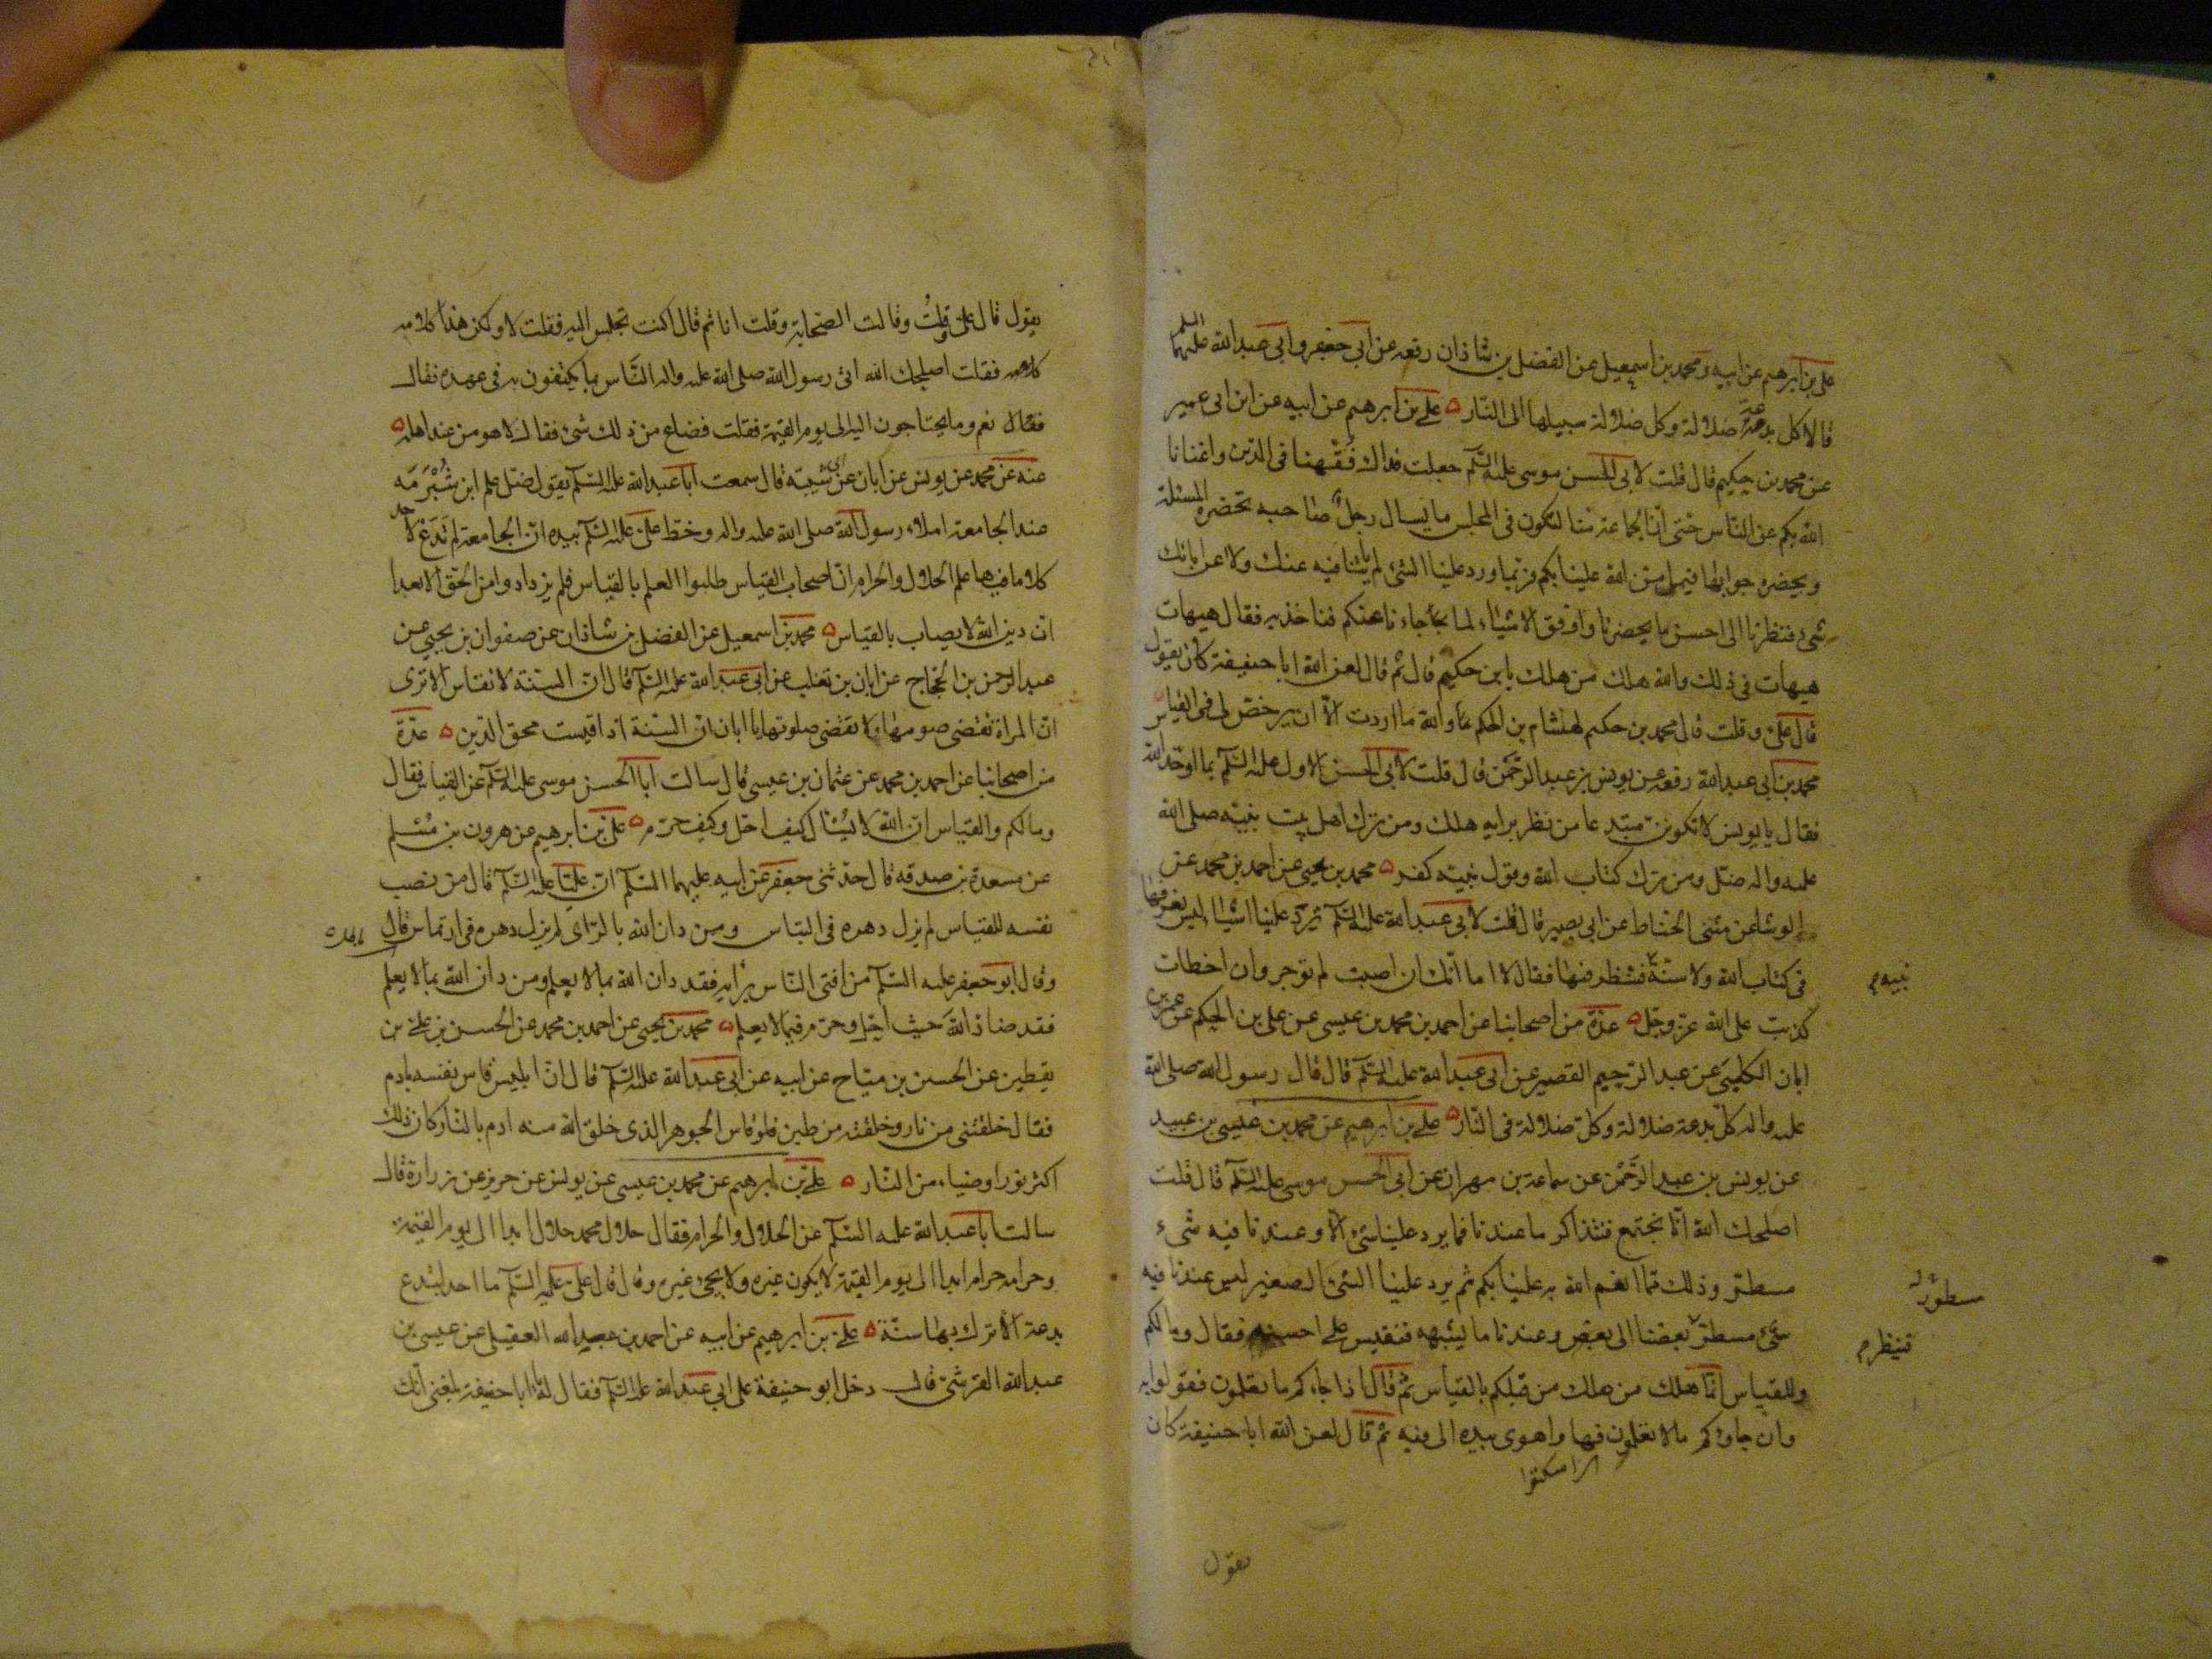 على بن ابرهيم عن ابيه ومحمد بن اسمعيل عن الفضل بن شاذان رفعه عن ابى جعفر وابى عبد الله عليهما السلم
قالا كل بدعة ضلالة وكل ضلالة سبيلها الى النار ه على بن ابرهيم عن ابيه عن ابن ابى عمير
عن محمد بن حكيم قال قلت لابى الحسن موسى عليه السلم جعلت فداك فُقّهنا فى الدين واغنانا
الله بكم عن الناس حتى انّ الجماعة منا لتكون فى المجلس ما يسال رجل صاحبه تحضره المسئلة
ويحضره جوابها فيما منّ الله علينا بكم فربّما ورد علينا الشئ لم ياتنا فيه عنك ولا عن ابائك
شئ فنظرنا الى احسن ما يحضرنا واوفق الاشياء لما جاءنا عنكم فناخذ به فقال هيهات
هيهات فى ذلك والله هلك من هلك يا بن حكيم قال ثم قال لعن الله ابا حنيفة كان يقول
قال علىّ وقلت قال محمد بن حكيم لهشام بن الحكم والله ما اردت الّا ان يرخص لى فى القياس
محمد بن ابى عبد الله رفعه عن يونس بن عبد الرحمن قال قلت لابى الحسن الاول عليه السلم بما اوحّد الله
فقال يا يونس لا تكوننّ مبتدعا من نظر برايه هلك ومن ترك اهل بيت نبيّه صلى الله
عليه واله ضلّ ومن ترك كتاب الله وقول نبيّه كفر ه محمد بن يحيى عن احمد بن محمد عن
الوشا عن مثنى الحناط عن ابى بصير قال قلت لابى عبد الله عليه السلم تردّ علينا اشيا ليس نعرفها
فى كتاب الله ولا سنّة فننظر فيها فقال لا اما انّك ان اصبت لم توجر وان اخطات
نبيه م
كذبت على الله عز وجل ه عدّة من اصحابنا عن احمد بن محمد بن عيسى عن على بن الحكم عن عمر بن
ابان الكلبى عن عبد الرحيم القصير عن ابى عبد الله عليه السلم قال قال رسول الله صلى الله
عليه واله كلّ بدعة ضلالة وكلّ ضلالة فى النار ه على بن ابرهيم عن محمد بن عيسى بن عبيد
عن يونس بن عبد الرّحمن عن سماعة بن مهران عن ابى الحسن موسى عليه السلم قال قلت
اصلحك الله انّا نجتمع فنتذاكر ما عندنا فما يرد علينا شئ الّا وعندنا فيه شىء
مسطّر وذلك ممّا انعم الله به علينا بكم ثم يرد علينا الشئ الصغير ليس عندنا فيه
سطور
شئ مسطر بعضنا الى بعض وعندنا ما يشبهه فنقيس على احسنه فقال ومالكم
فينظر م
وللقياس انّما هلك من هلك من قبلكم بالقياس ثمّ قال اذا جاءكم ما تعلمون فقولوا به
وان جاءكم ما لا تعلمون فها واهوى بيده الى فيه ثم قال لعن الله ابا حنيفة كان
يقول
يقول قال علىّ وقلتُ وقالت الصّحابة وقلت انا ثم قال اكنت تجلس اليه فقلت لا ولكن هذا كلامه
فقلت اصلحك الله اتى رسول الله صلى الله عليه واله النّاس بما يكتفون به فى عهده فقال
فقال نعم وما يحتاجون اليه الى يوم القيمة فقلت فضاع من ذلك شئ فقال لا هو من عند اهله ه
عنه عن محمد عن يونس عن ابان عن ابى شيبة قال سمعت ابا عبد الله عليه السلم يقول ضل علم ابن شُبْرَمَه
عند الجامعة املاء رسول الله صلى الله عليه واله وخطّ علىّ عليه السلم بيده انّ الجامعة لم تَدَعْ لاحد
كلاما فيها علم الحلال والحرام انّ اصحاب القياس طلبوا العلم بالقياس فلم يزدادوا من الحقّ الا بعدا
انّ دين الله لا يصاب بالقياس ه محمد بن اسمعيل عن الفضل بن شاذان عن صفوان بن يحيى عن
عبد الرحمن بن الحجّاج عن ابان بن تغلب عن ابى عبد الله عليه السلم قال انّ السّنة لا تقاس الا ترى
انّ المراة تقضى صومها ولا تقضى صلوتها يا ابان انّ السّنة اذا قيست محق الدّين ه عدّة
من اصحابنا عن احمد بن محمد عن عثمان بن عيسى قال سالت ابا الحسن موسى عليه السلم عن القياس فقال
ومالكم والقياس انّ الله لا يُسْال كيف احلّ وكيف حرّم ه علىّ بن ابرهيم عن هرون بن مُسلم
عن مسعدة بن صدقه قال حدّثنى جعفر عن ابيه عليهما السلم انّ عليّا عليه السلم قال من نصب
نفسه للقياس لم يزل دهره فى التباس ومن دان الله بالرّاى لم يزل دهره فى ارتماس قال
وقال ابو جعفر عليه السلم من افتى النّاس برايه فقد دان الله بما لا يعلم ومن دان الله بما لا يعلم
فقد ضادّ الله حيث احلّ وحرّم فيما لا يعلم ه محمد بن يحيى عن احمد بن محمد عن الحسن بن على بن
يقطين عن الحسين بن ميّاح عن ابيه عن ابى عبد الله عليه السلم قال انّ ابليس قاس نفسه بادم
فقال خلقتنى من نار وخلقته من طين فلو قاس الجوهر الذى خلق الله منه ادم بالنّار كان ذلك
اكثر نورا وضياء من النّار ه علىّ بن ابرهيم عن محمد بن عيسى عن يونس عن حريز عن زرارة قال
سالت ابا عبد الله عليه السلم عن الحلال والحرام فقال حلال محمد حلال ابدا الى يوم القيمة
وحرامه حرام ابدا الى يوم القيمة لا يكون غيره ولا يجئ غيره وقال قال علىّ عليه السلم ما احد ابتدع
بدعة الّا ترك بها سنّة ه علىّ بن ابرهيم عن ابيه عن احمد بن عبد الله العقيلى عن عيسى بن
عبد الله القرشىّ قال دخل ابو حنيفة على ابى عبد الله عليه السلم فقال له يا ابا حنيفة بلغنى انّك